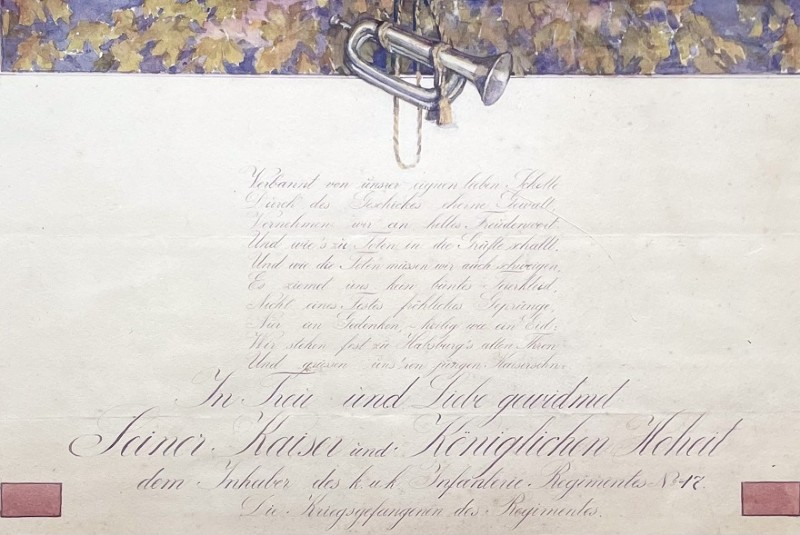 Verbannt von unsrer eignen lieben Scholle
Durch des Geschickes eherne Gewalt,
Vernehmen wir ein helles Freudenwort
Und wie's zu Toten in die Grüfte schallt.
Und wie die Toten müssen wir auch schweigen,
Es ziemet uns kein buntes Feierkleid,
Nicht eines Festes fröhliches Gepränge,
Nur ein Gedenken, heilig wie ein Eid:
Wir stehen fest zu Habsburg's altem Thron
Und uns von jungen Kaisersohn.
In Treu und Liebe gewidmet
Seiner Kaiser und Königlichen Hoheit
dem Inhaber des k.u.k. Infanterie Regimentes No 17.
Die Kriegsgefangenen des Regimentes.